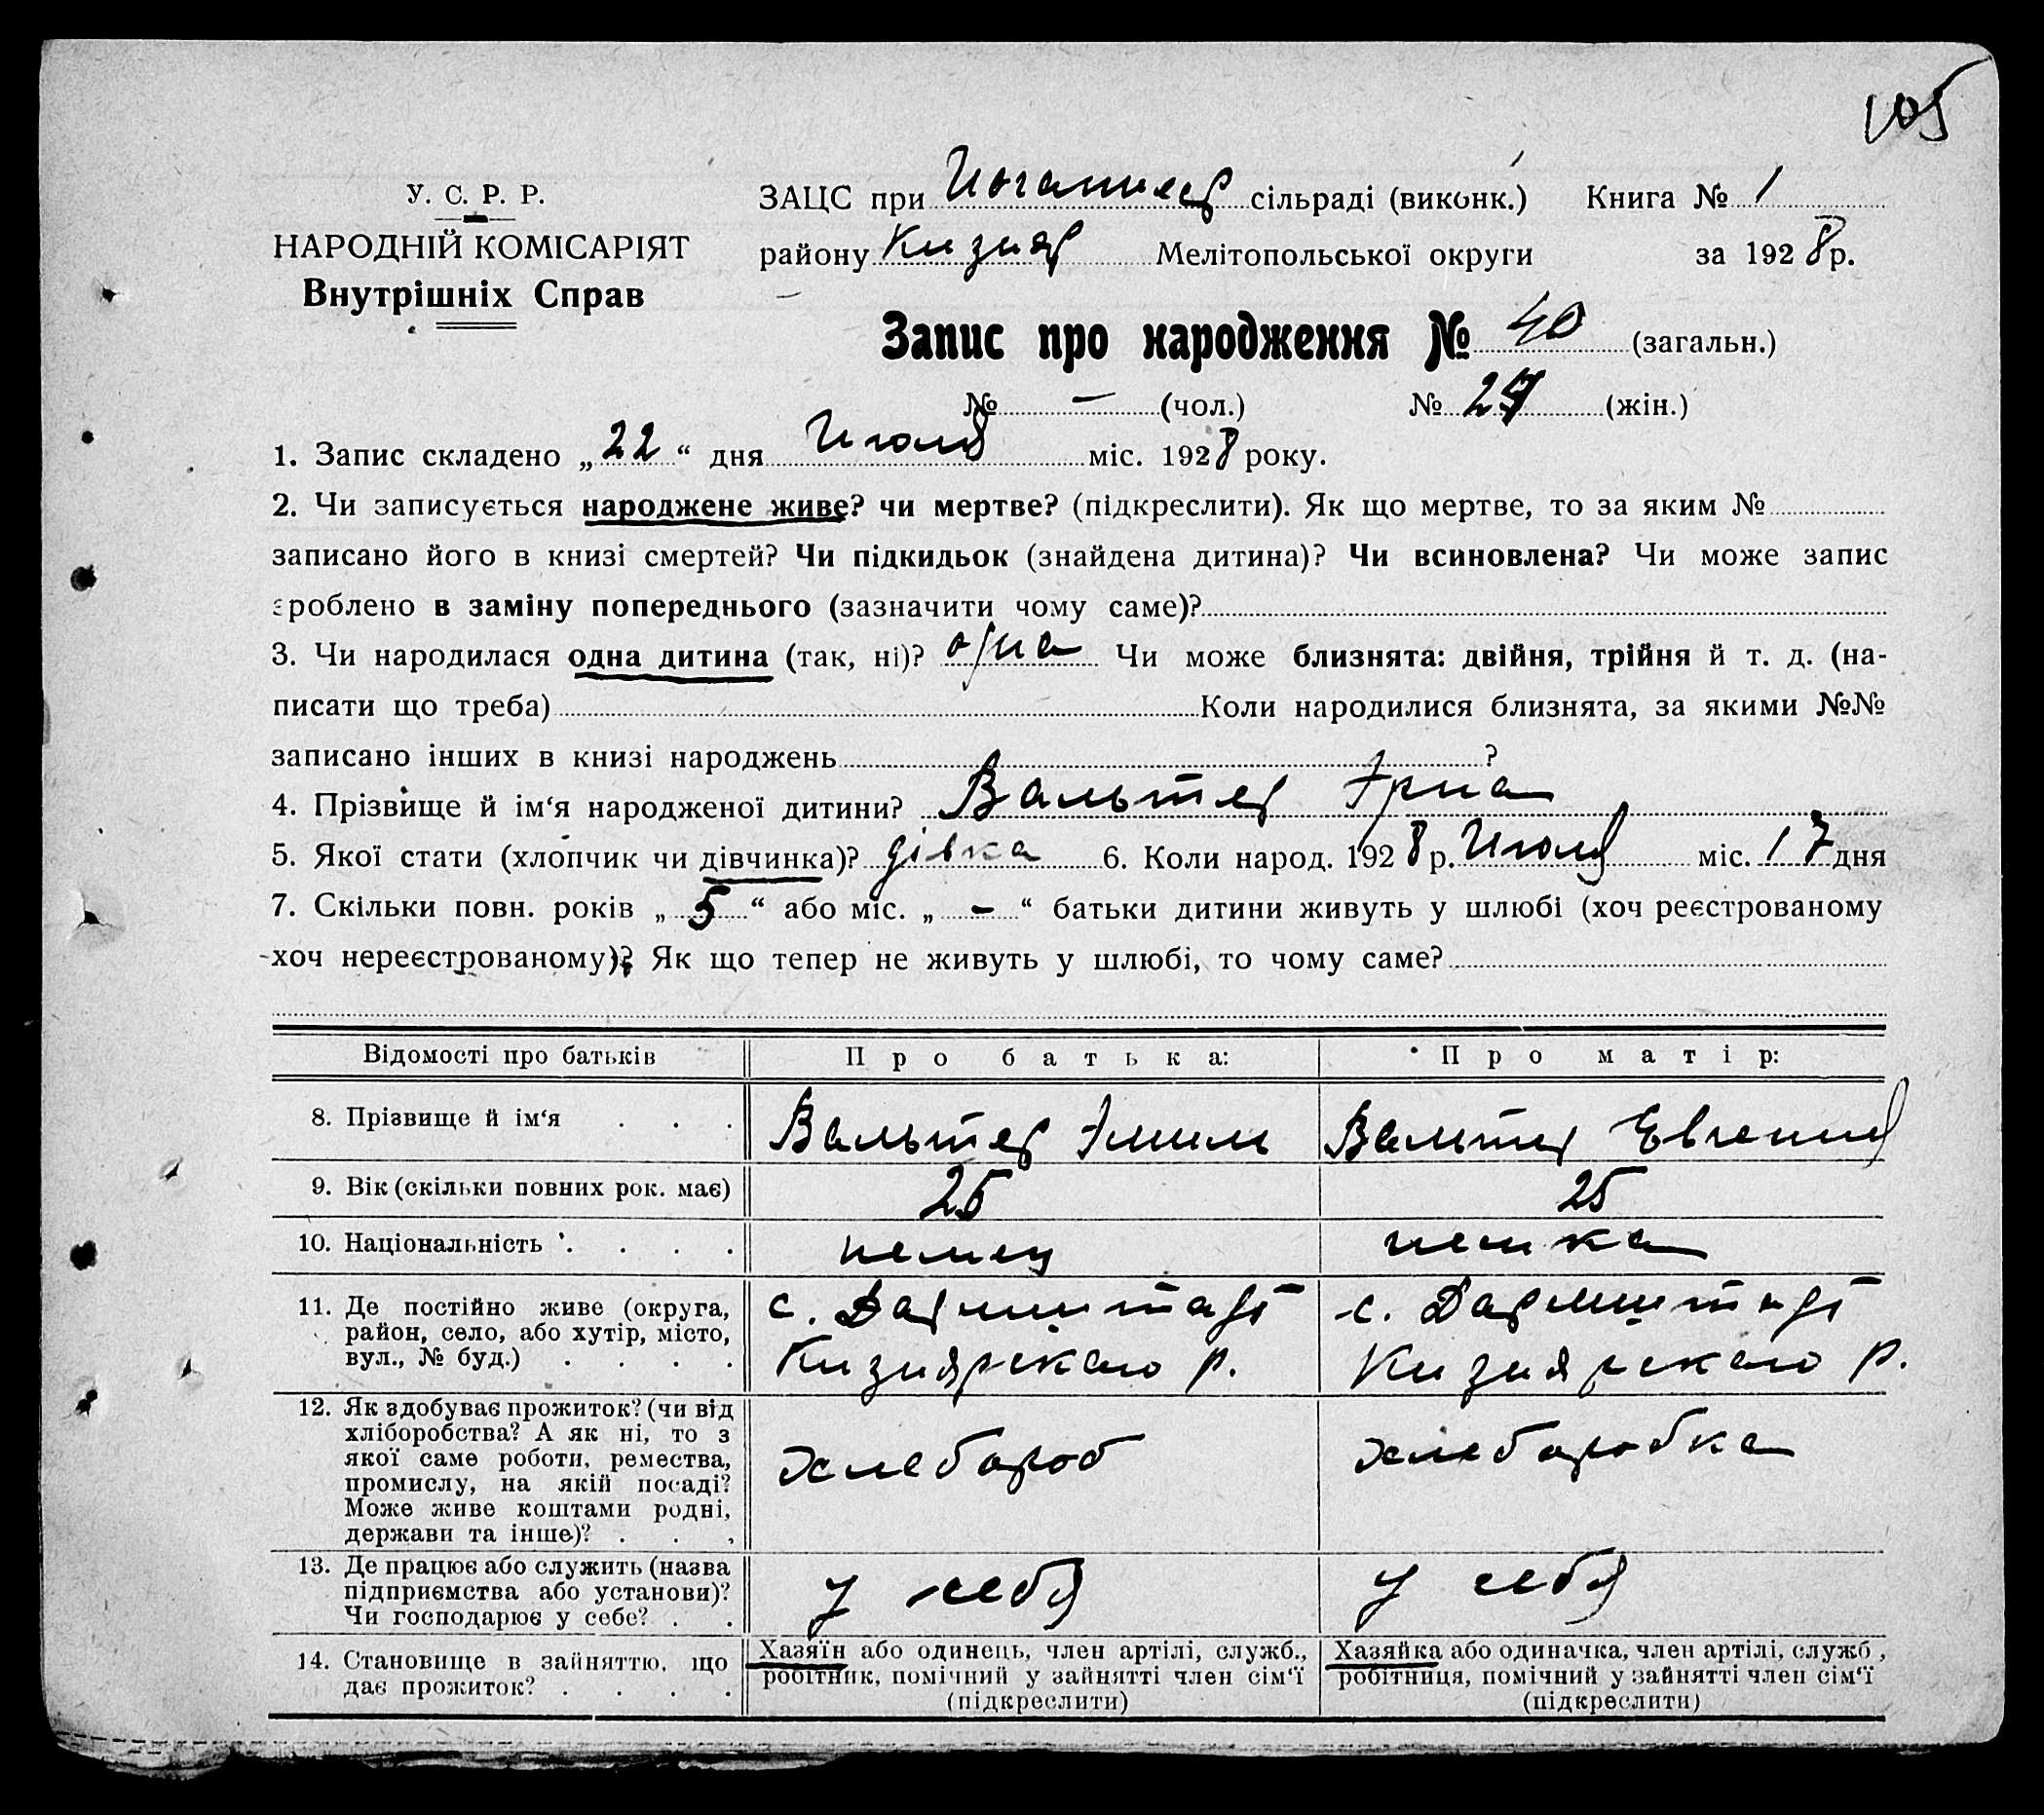 105
У. С. Р. Р.
НАРОДНІЙ КОМІСАРІЯТ
Внутрішніх Справ
ЗАЦС при сільраді (виконк.) Книга № 1
району Кизияр Мелітопольської округи за 1928 р.
Запис про народження № 40 (загальн.)
№ - (чол.) № (жін.)
1. Запис складено „22“ дня Июля міс. 1928 року.
2. Чи записується народжене живе? чи мертве? (підкреслити). Як що мертве, то за яким №
записано його в книзі смертей? Чи підкидьок (знайдена дитина)? Чи всиновлена? Чи може запис
зроблено в заміну попереднього (зазначити чому саме)?
3. Чи народилася одна дитина (так, ні)? одна Чи може близнята: двійня, трійня й т. д. (на-
писати що треба) Коли народилися близнята, за якими №№
записано інших в книзі народжень ?
4. Прізвище й ім‘я народженої дитини? Вальтер Эрна
5. Якої стати (хлопчик чи дівчинка)? дівка 6. Коли народ. 1928 р. Июля міс. 17 дня
7. Скільки повн. років „5“ або міс. „-“ батьки дитини живуть у шлюбі (хоч реєстрованому
хоч нереєстрованому)? Як що тепер не живуть у шлюбі, то чому саме?
Відомості про батьків Про батька: Про матір:
8. Прізвище й ім‘я . . . Вальтер Эмиль Вальтер Евгения
9. Вік (скільки повних рок. має) 25 25
10. Національність . . . . немец немка
11. Де постійно живе (округа,
район, село, або хутір, місто,
вул., № буд.) . . . .
с. Дармштадт
Кизиярскаго р.
с. Дармштадт
Кизиярскаго р.
12. Як здобуває прожиток? (чи від
хліборобства? А як ні, то з
якої саме роботи, ремества,
промислу, на якій посаді?
Може живе коштами родні,
держави та інше)? . . .
хлебороб
хлеборобка
13. Де працює або служить (назва
підприємства або установи)?
Чи господарює у себе? . .
у себя
у себя
14. Становище в зайняттю, що
дає прожиток? . . . .
Хазяїн або одинець, член артілі, служб.,
робітник, помічний у зайнятті член сім‘ї
(підкреслити)
Хазяйка або одиначка, член артілі, служб.,
робітниця, помічний у зайнятті член сім‘ї
(підкреслити)